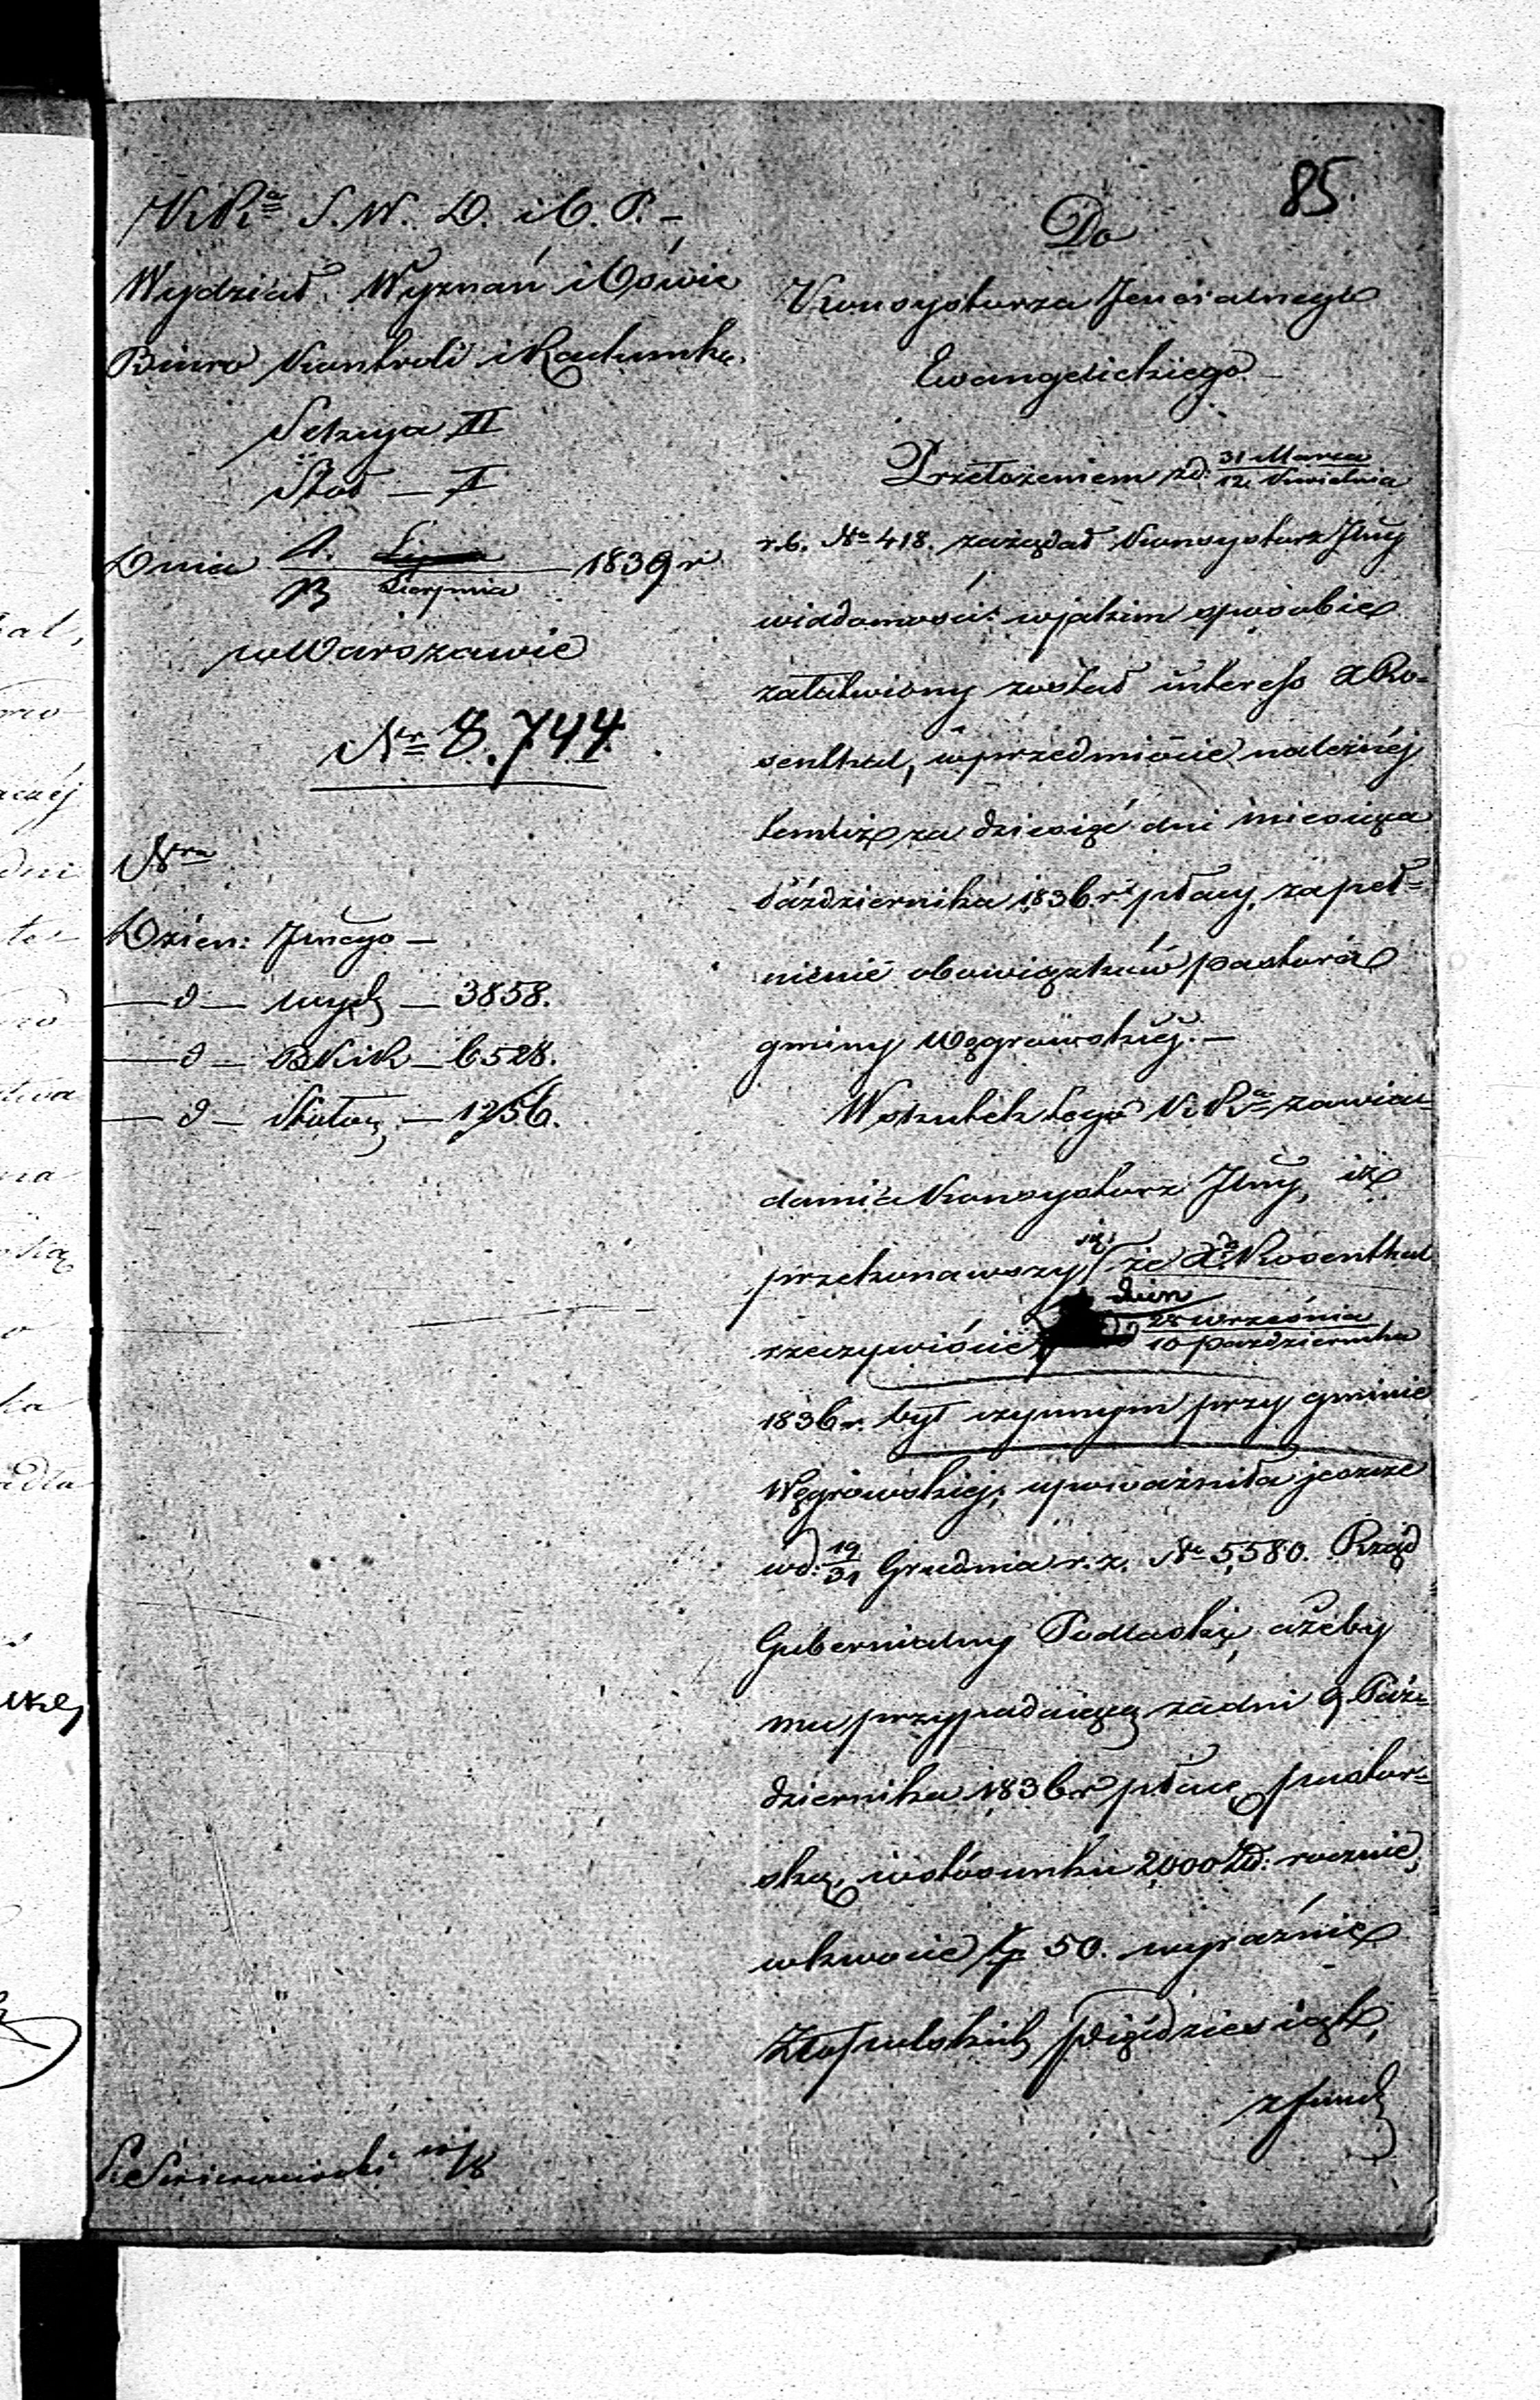 85.
K. R.a S. W. D. i O. P. –
Wydział Wyznań i Oświe
Biuro Kontroli i Rachunko.
Sekcya III
Stół – I
Dnia 1. Lipca / 13 Sierpnia 1839 r
w Warszawie
Nr 8.744.
Nra
Dzien: Jlnego –
– d – wydz – 3858.
– d – BKiR – 6528.
– d – Stołow – 1256.
Do
Konsystorza Jeneralnego
Ewangelickiego
Przełożeniem z d: 31 Marca / 12 Kwietnia
r. b. No 418. zażądał Konsystorz Jlny
wiadomości: w jakim sposobie
załatwiony został interess X Ro=
senthal, w przedmiocie należnéj
temuż za dziesięć dni miesiąca
Października 1836 r. płacy, za peł=
nienie obowiązków pastora
gminy Węgrowskiéj. –
W skutek tego K. R.a zawia=
damia Konsystorz Jlny, iż
przekonawszy się że Xdz Rosenthal
rzeczywiście dzien 28 Września / 10 Października
1836 r. był czynnym przy gminie
Węgrowskiej, upoważniła jeszcze
w d: 19/31 Grudnia r. z. No 5580. Rząd
Gubernialny Podlaski, ażeby
mu przypadaiącą za dni 9 Paź=
dziernika 1836 r płacę pastor=
ską, w stósunku 2000 Zł: rocznie,
w kwocie Zp 50. wyraźnie
Złotpolskich pięćdziesiąt,
z fund